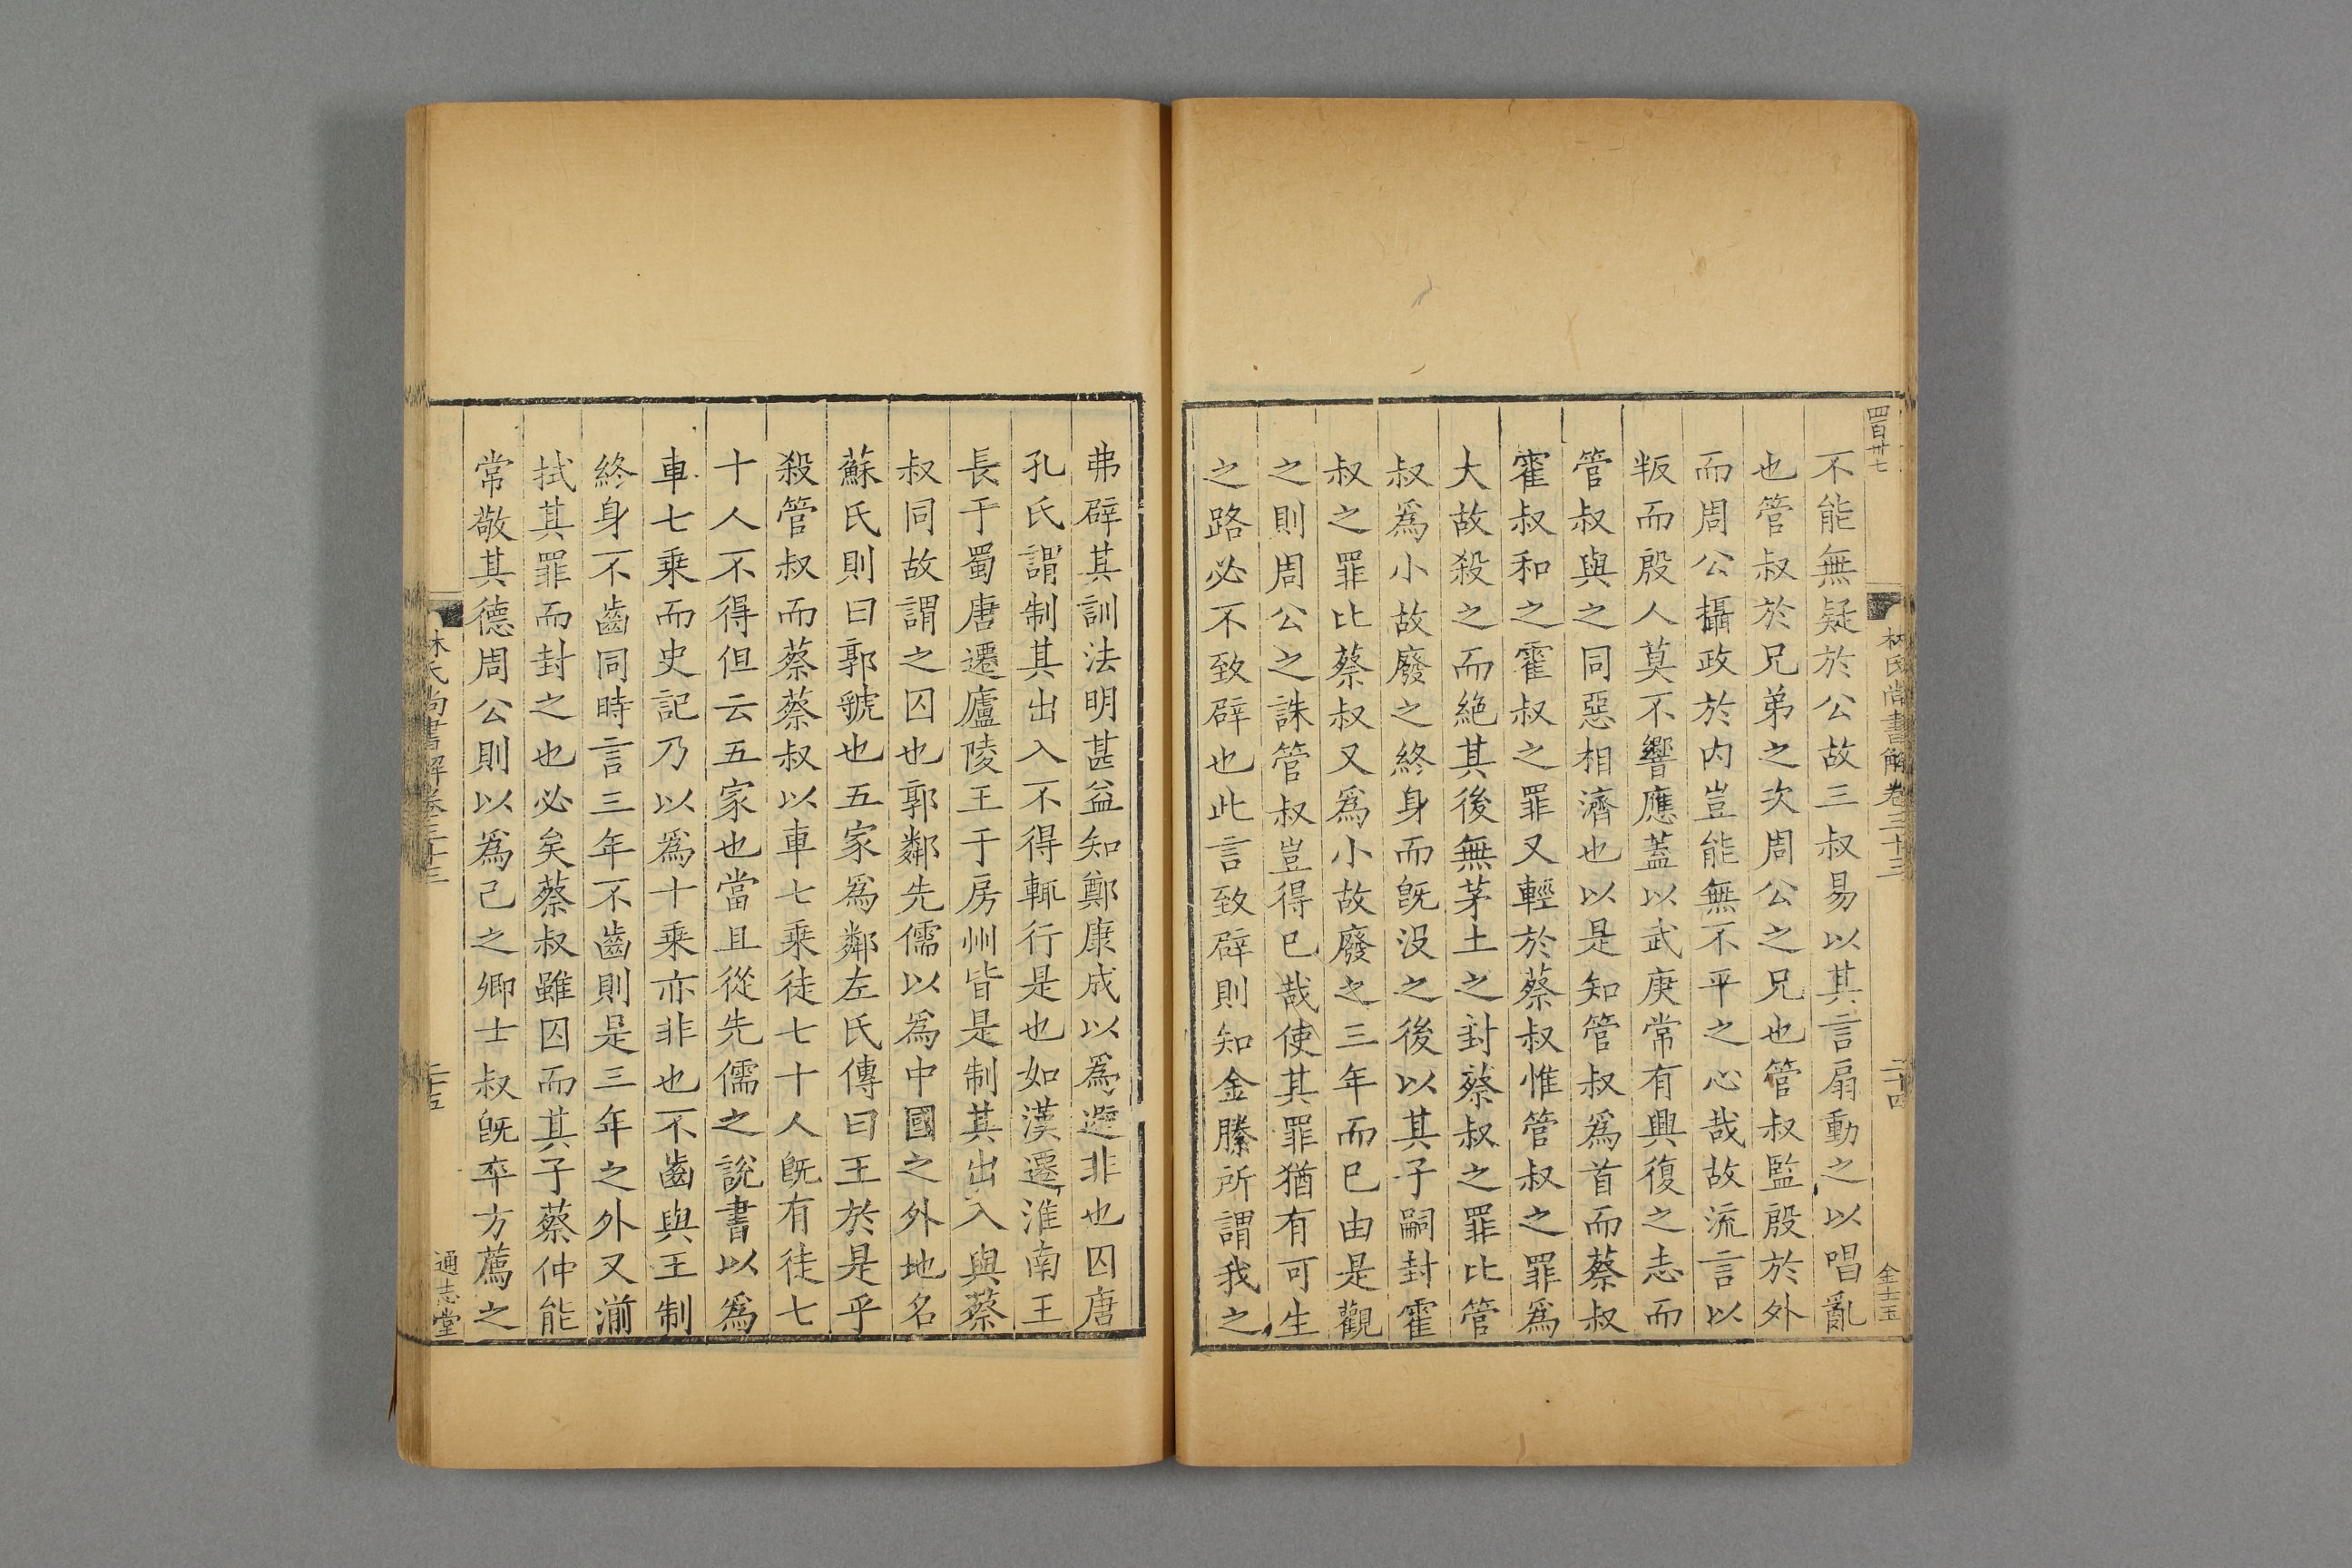 四百卅七
林氏尚書解卷三十三
二十四
金士玉
不能無疑於公故三叔易以其言扇動之以唱亂
也管叔於兄弟之次周公之兄也管叔監殷於外
而周公攝政於内豈能無不平之心哉故流言以
叛而殷人莫不響應蓋以武庚常有興復之志而
管叔與之同惡相濟也以是知管叔爲首而蔡叔
霍叔和之霍叔之罪又輕於蔡叔惟管叔之罪爲
大故殺之而絶其後無茅土之封蔡叔之罪比管
叔爲小故廢之終身而旣没之後以其子嗣封霍
叔之罪比蔡叔又爲小故廢之三年而已由是觀
之則周公之誅管叔豈得已哉使其罪猶有可生
之路必不致辟也此言致辟則知金縢所謂我之
弗辟其訓法明甚益知鄭康成以爲避非也囚唐
孔氏謂制其出入不得輒行是也如漢遷淮南王
長于蜀唐遷廬陵王于房州皆是制其出入與蔡
叔同故謂之囚也郭鄰先儒以爲中國之外地名
蘇氏則曰郭虢也五家爲鄰左氏傳曰王於是乎
殺管叔而蔡蔡叔以車七乘徒七十人旣有徒七
十人不得但云五家也當且從先儒之說書以爲
車七乘而史記乃以爲十乘亦非也不齒與王制
終身不齒同時言三年不齒則是三年之外又湔
拭其罪而封之也必矣蔡叔雖囚而其子蔡仲能
常敬其德周公則以爲己之卿士叔旣卒方薦之
林氏尚書解卷三十三
二十五
通志堂